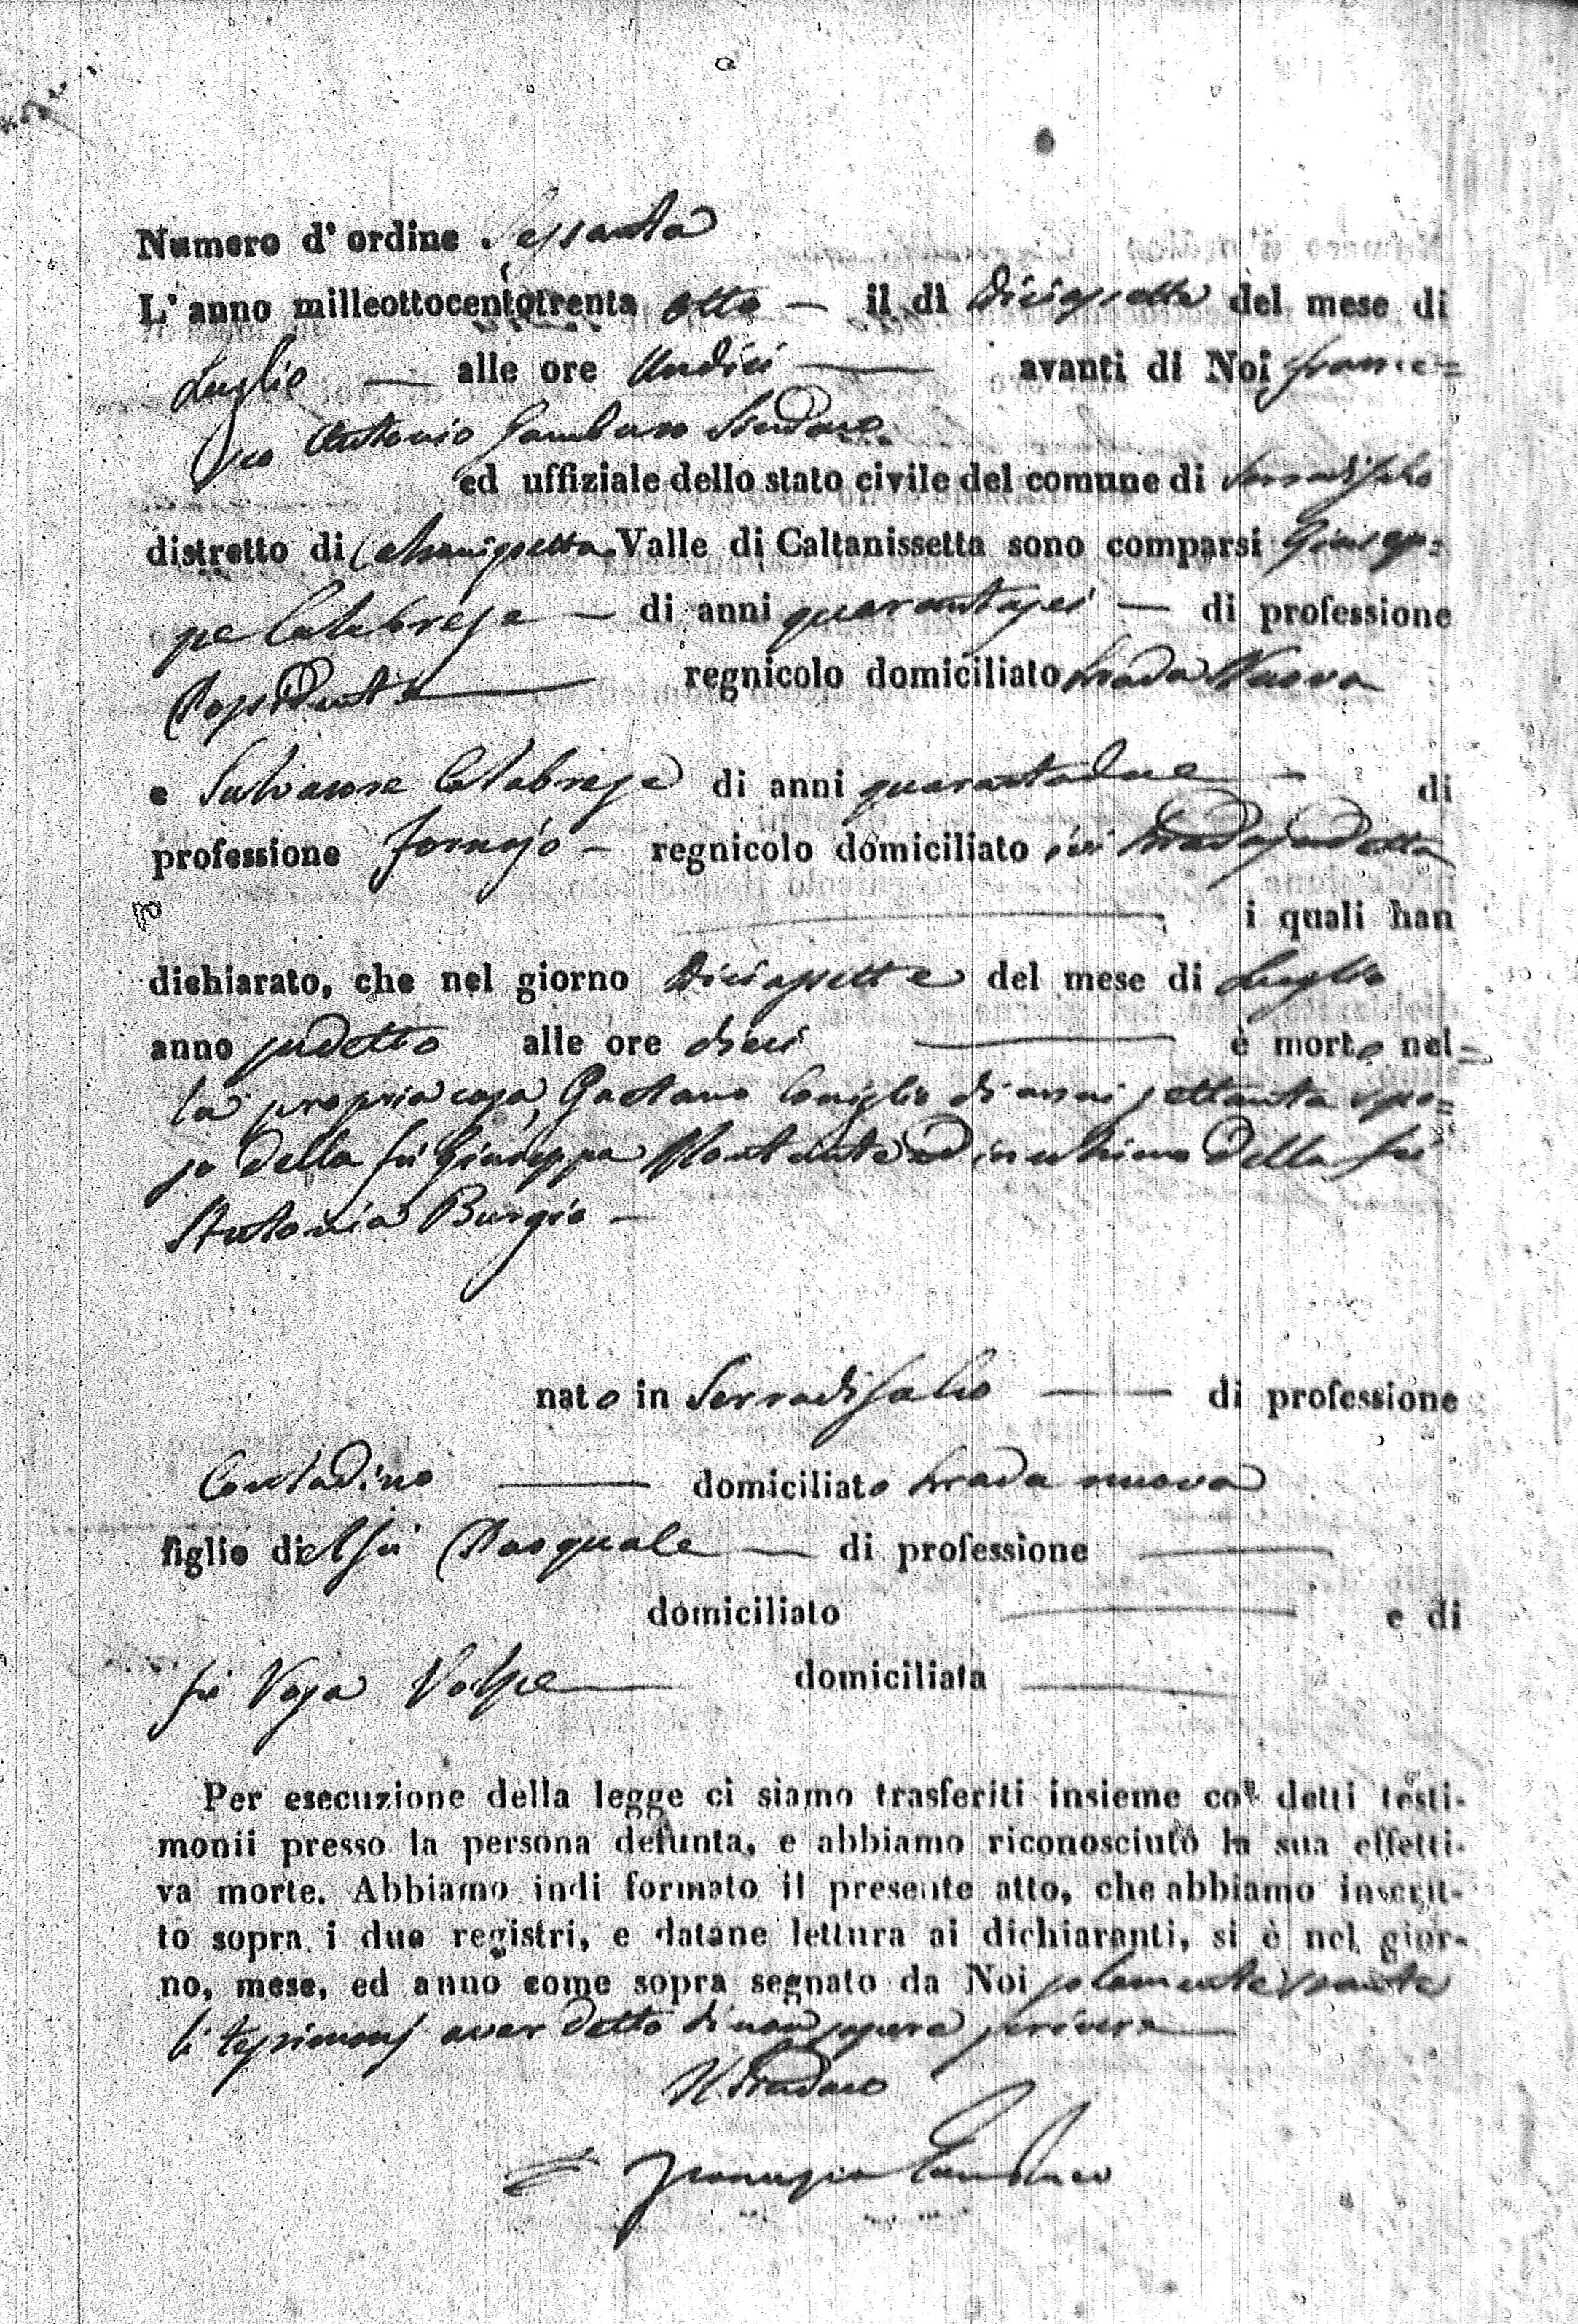 Numero d' ordine Sessanta
L' anno milleottocentotrenta otto — il dì Diciassette del mese di
Luglio — alle ore Undici — avanti di Noi France=
sco Antonio Gambuso Sindaco
ed uffiziale dello stato civile del comune di Serradifalco
distretto di Caltanissetta Valle di Caltanissetta sono comparsi Giusep=
pe Calabrese — di anni quarantasei — di professione
Possidente — regnicolo domiciliato strada Nuova
e Salvatore Calabrese di anni quarantadue — di
professione fornajo — regnicolo domiciliato ivi strada sudetta
i quali han
dichiarato, che nel giorno Diciassette del mese di Luglio
anno sudetto alle ore dieci — è morto nel=
la propria casa Gaetano Coniglio di anni settanta spo=
so della fù Giuseppa Montante ed in ultimo della fù
Antonia Burgio —
nato in Serradifalco — di professione
Contadino — domiciliato strada nuova
figlio di del fù Pasquale — di professione —
domiciliato — e di
fù Rosa Volpe — domiciliata —
Per esecuzione della legge ci siamo trasferiti insieme co' detti testi-
monii presso la persona defunta, e abbiamo riconosciuto la sua effetti-
va morte. Abbiamo indi formato il presente atto, che abbiamo inscrit-
to sopra i due registri, e datane lettura ai dichiaranti, si è nel gior-
no, mese, ed anno come sopra segnato da Noi solamente stante
li testimonj aver detto di non sapere scrivere —
Il Sindaco